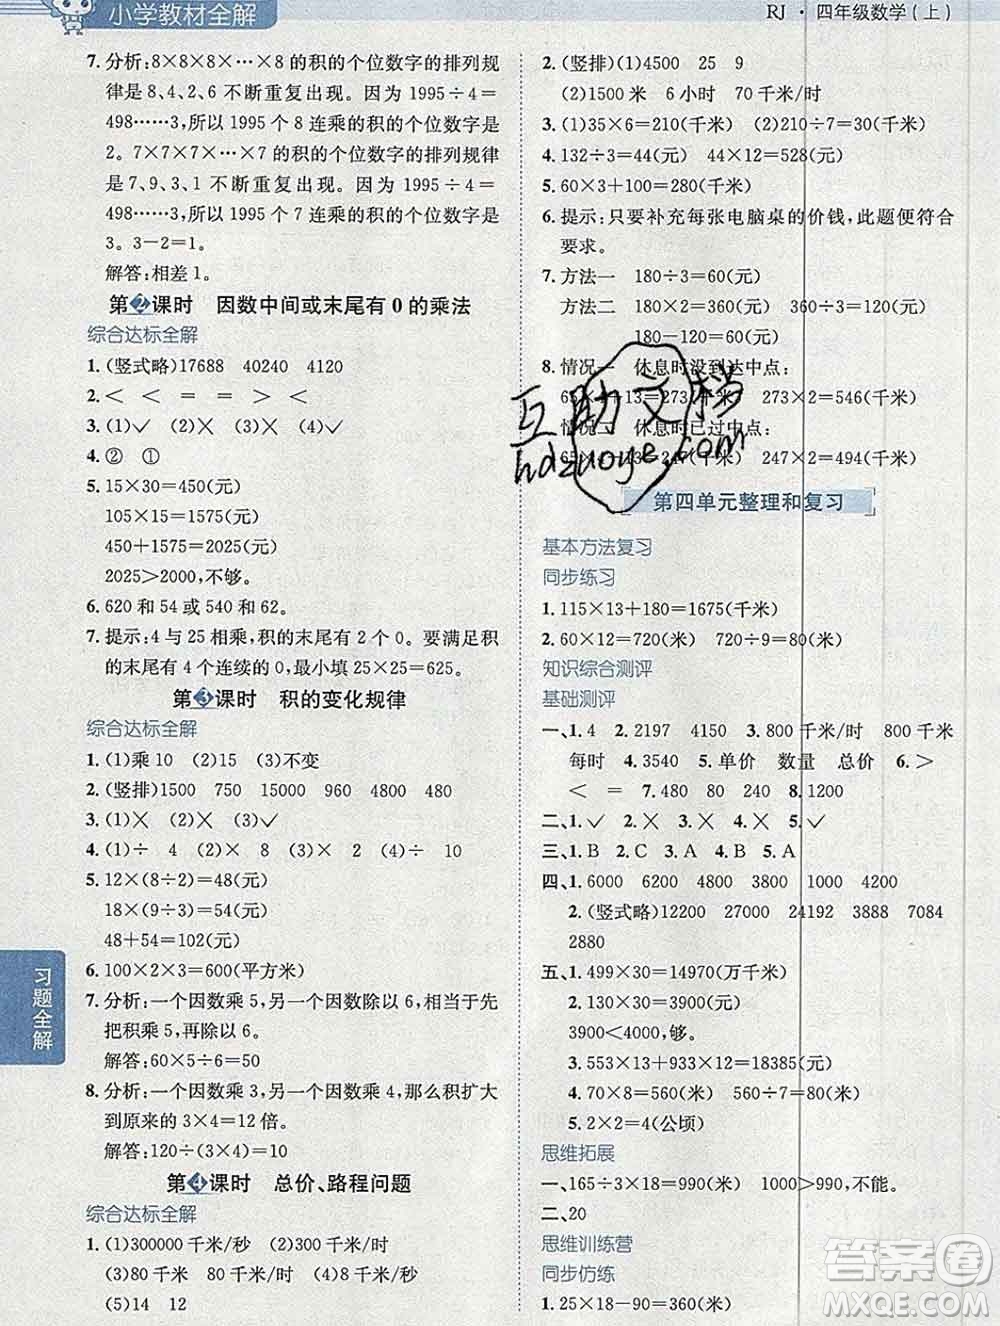 小学教材全解
RJ·四年级数学(上)
7. 分析:8×8×8×…×8的积的个位数字的排列规
律是8、4、2、6不断重复出现。因为1995÷4=
498……3,所以1995个8连乘的积的个位数字是
2。7×7×7×…×7的积的个位数字的排列规律
是7、9、3、1不断重复出现。因为1995÷4=
498……3,所以1995个7连乘的积的个位数字是
3。3-2=1。
解答:相差1。
第2课时 因数中间或末尾有0的乘法
综合达标全解
1. (竖式略)17688 40240 4120
2. < < = = > <
3. (1)√ (2)× (3)× (4)×
4. ② ①
5. 15×30=450(元)
105×15=1575(元)
450+1575=2025(元)
2025>2000,不够。
6. 620和54或540和62。
7. 提示:4与25相乘,积的末尾有2个0。要满足积
的末尾有4个连续的0,最小填25×25=625。
第3课时 积的变化规律
综合达标全解
1. (1)乘 10 (2)15 (3)不变
2. (竖排)1500 750 15000 960 4800 480
3. (1)× (2)× (3)√
4. (1)÷ 4 (2)× 8 (3)× 2 (4)÷ 10
5. 12×(8÷2)=48(元)
18×(9÷3)=54(元)
48+54=102(元)
6. 100×2×3=600(平方米)
7. 分析:一个因数乘5,另一个因数除以6,相当于先
把积乘5,再除以6。
解答:60×5÷6=50
8. 分析:一个因数乘3,另一个因数乘4,那么积扩大
到原来的3×4=12倍。
解答:120÷(3×4)=10
第4课时 总价、路程问题
综合达标全解
1. (1)300000千米/秒 (2)300千米/时
(3)80千米 80千米/时 (4)8千米/秒
(5)14 12
习题全解
2. (竖排)(1)4500 25 9
(2)1500米 6小时 70千米/时
3. (1)35×6=210(千米) (2)210÷7=30(千米)
4. 132÷3=44(千米) 44×12=528(千米)
5. 60×3+100=280(千米)
6. 提示:只要补充每张电脑桌的价钱,此题便符合
要求。
7. 方法一 180÷3=60(元)
方法二 180×2=360(元) 360÷3=120(元)
180-120=60(元)
8. 情况一 休息时没到达中点:
65×4+13=273(千米) 273×2=546(千米)
情况二 休息时已过中点:
65×4-13=247(千米) 247×2=494(千米)
互助文档
hdzuoye.com
第四单元整理和复习
基本方法复习
同步练习
1. 115×13+180=1675(千米)
2. 60×12=720(米) 720÷9=80(米)
知识综合测评
基础测评
一、1. 4 2. 2197 4150 3. 800千米/时 800千米
每时 4. 3540 5. 单价 数量 总价 6. >
< = 7. 480 80 240 8. 12000
二、1. √ 2. × 3. × 4. × 5. √
三、1. B 2. C 3. A 4. B 5. A
四、1. 6000 6200 4800 900 1000 4200
2. (竖式略)12200 27000 24192 3888 7084
2880
五、1. 499×30=14970(万千米)
2. (100+30)×30=3900(元)
3900<4000,够。
3. 553×13+933×12=18385(元)
4. 70×8=560(米) 560÷7=80(米)
5. 2×2=4(公顷)
思维拓展
一、165÷3×18=990(千米) 1000>990,不能。
二、20
思维训练营
同步仿练
1. 25×18-90=360(米)
答案圈
MXQE.COM